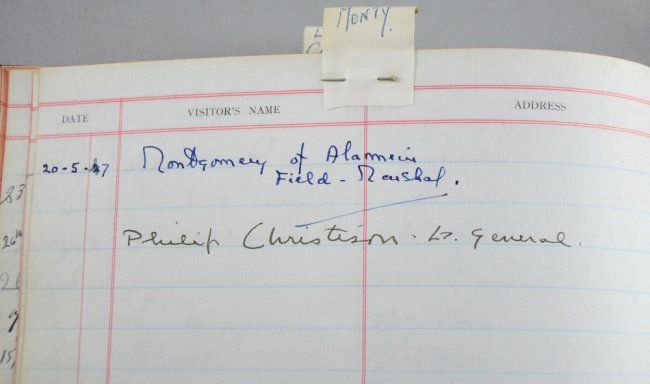 MONTY.
DATE
VISITOR'S NAME
ADDRESS
20-5-47
Montgomery of Alamein
Field-Marshal.
Philip Christison. Lt. General.
23
26th
7
15